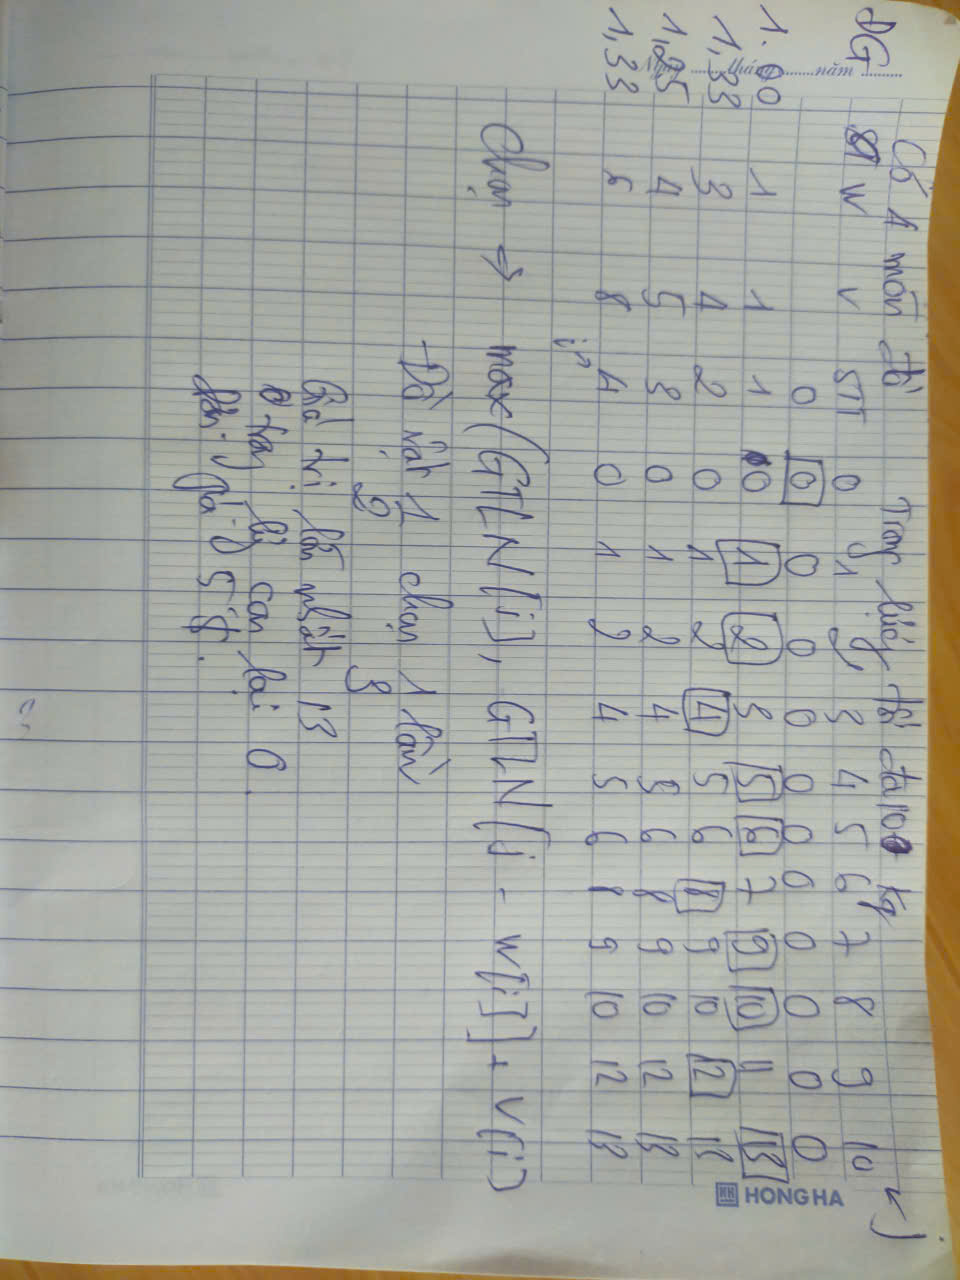 Ngày ........ tháng ........ năm ........
Có 4 món đồ Trọng lượng tối đa 10 kg
ĐG W V STT 0 1 2 3 4 5 6 7 8 9 10 j
0 0 0 0 0 0 0 0 0 0 0 0
1.00 1 1 1 0 1 2 3 5 6 7 9 10 11 13
1,33 3 4 2 0 1 2 4 5 6 8 9 10 12 13
1,25 4 5 3 0 1 2 4 5 6 8 9 10 12 13
1,33 6 8 4 0 1 2 4 5 6 8 9 10 12 13
i
Chọn → max(GTLN[j], GTLN[j - W[i]] + V(i)
-Đồ vật 1 chọn 1 lần
2 3
Giá trị lớn nhất 13
lại 0
HONG HA